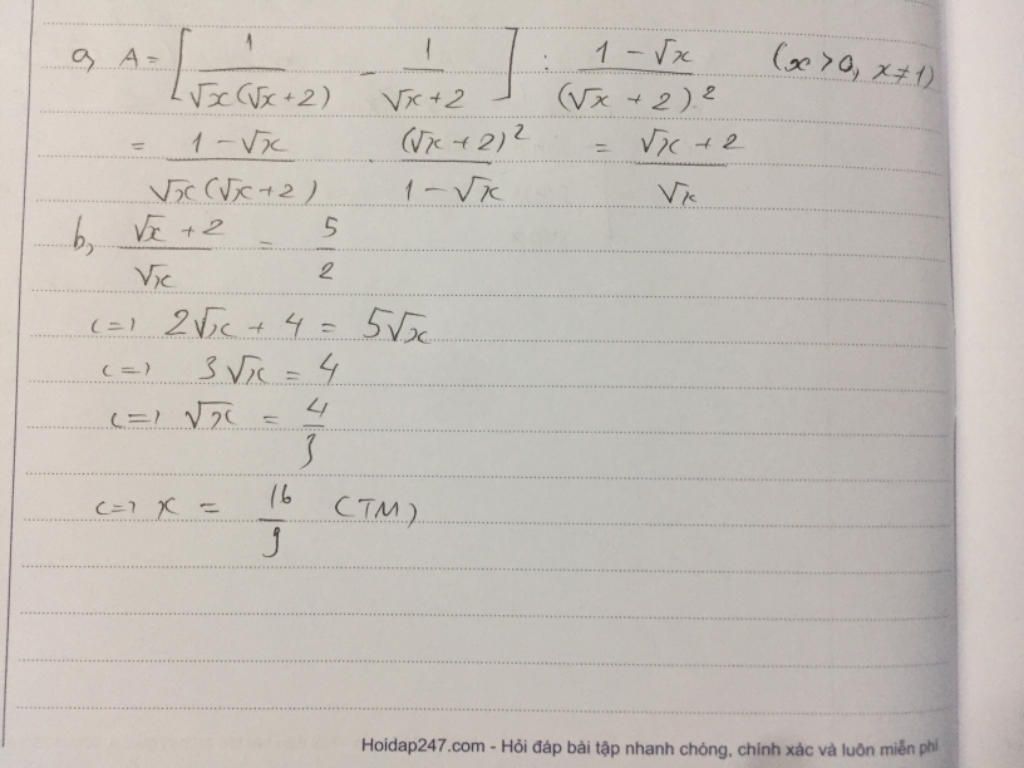 a, A = [ 1/(√x(√x+2)) - 1/(√x+2) ] : (1-√x)/(√x+2)² (x>0, x≠1)
= (1-√x)/(√x(√x+2)) · (√x+2)²/(1-√x) = (√x+2)/√x
b, (√x+2)/√x = 5/2
<=> 2√x + 4 = 5√x
<=> 3√x = 4
<=> √x = 4/3
<=> x = 16/9 (TM)
Hoidap247.com - Hỏi đáp bài tập nhanh chóng, chính xác và luôn miễn phí